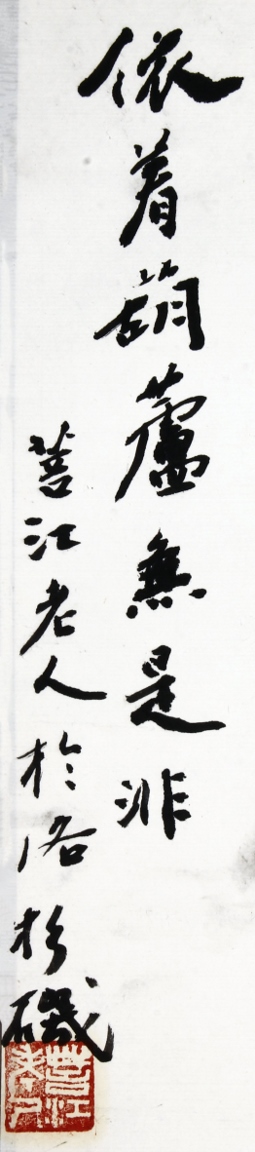 依着葫蘆無是非
菩江老人於洛杉磯
菩江
老人